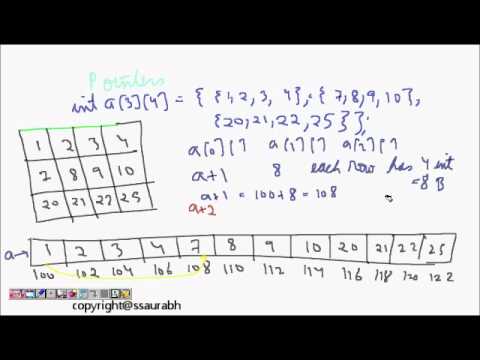 Pointers
int a[3][4] = { {1,2,3, 4}, {7,8,9,10},
{20,21,22,25}};
1 2 3 4
7 8 9 10
20 21 22 25
a[0][] a[1][] a[2][]
a+1 8 each row has 4 int
= 8 B
a+1 = 100+8 = 108
a+2
a→ 1 2 3 4 7 8 9 10 20 21 22 25
100 102 104 106 108 110 112 114 116 118 120 122
copyright@ssaurabh